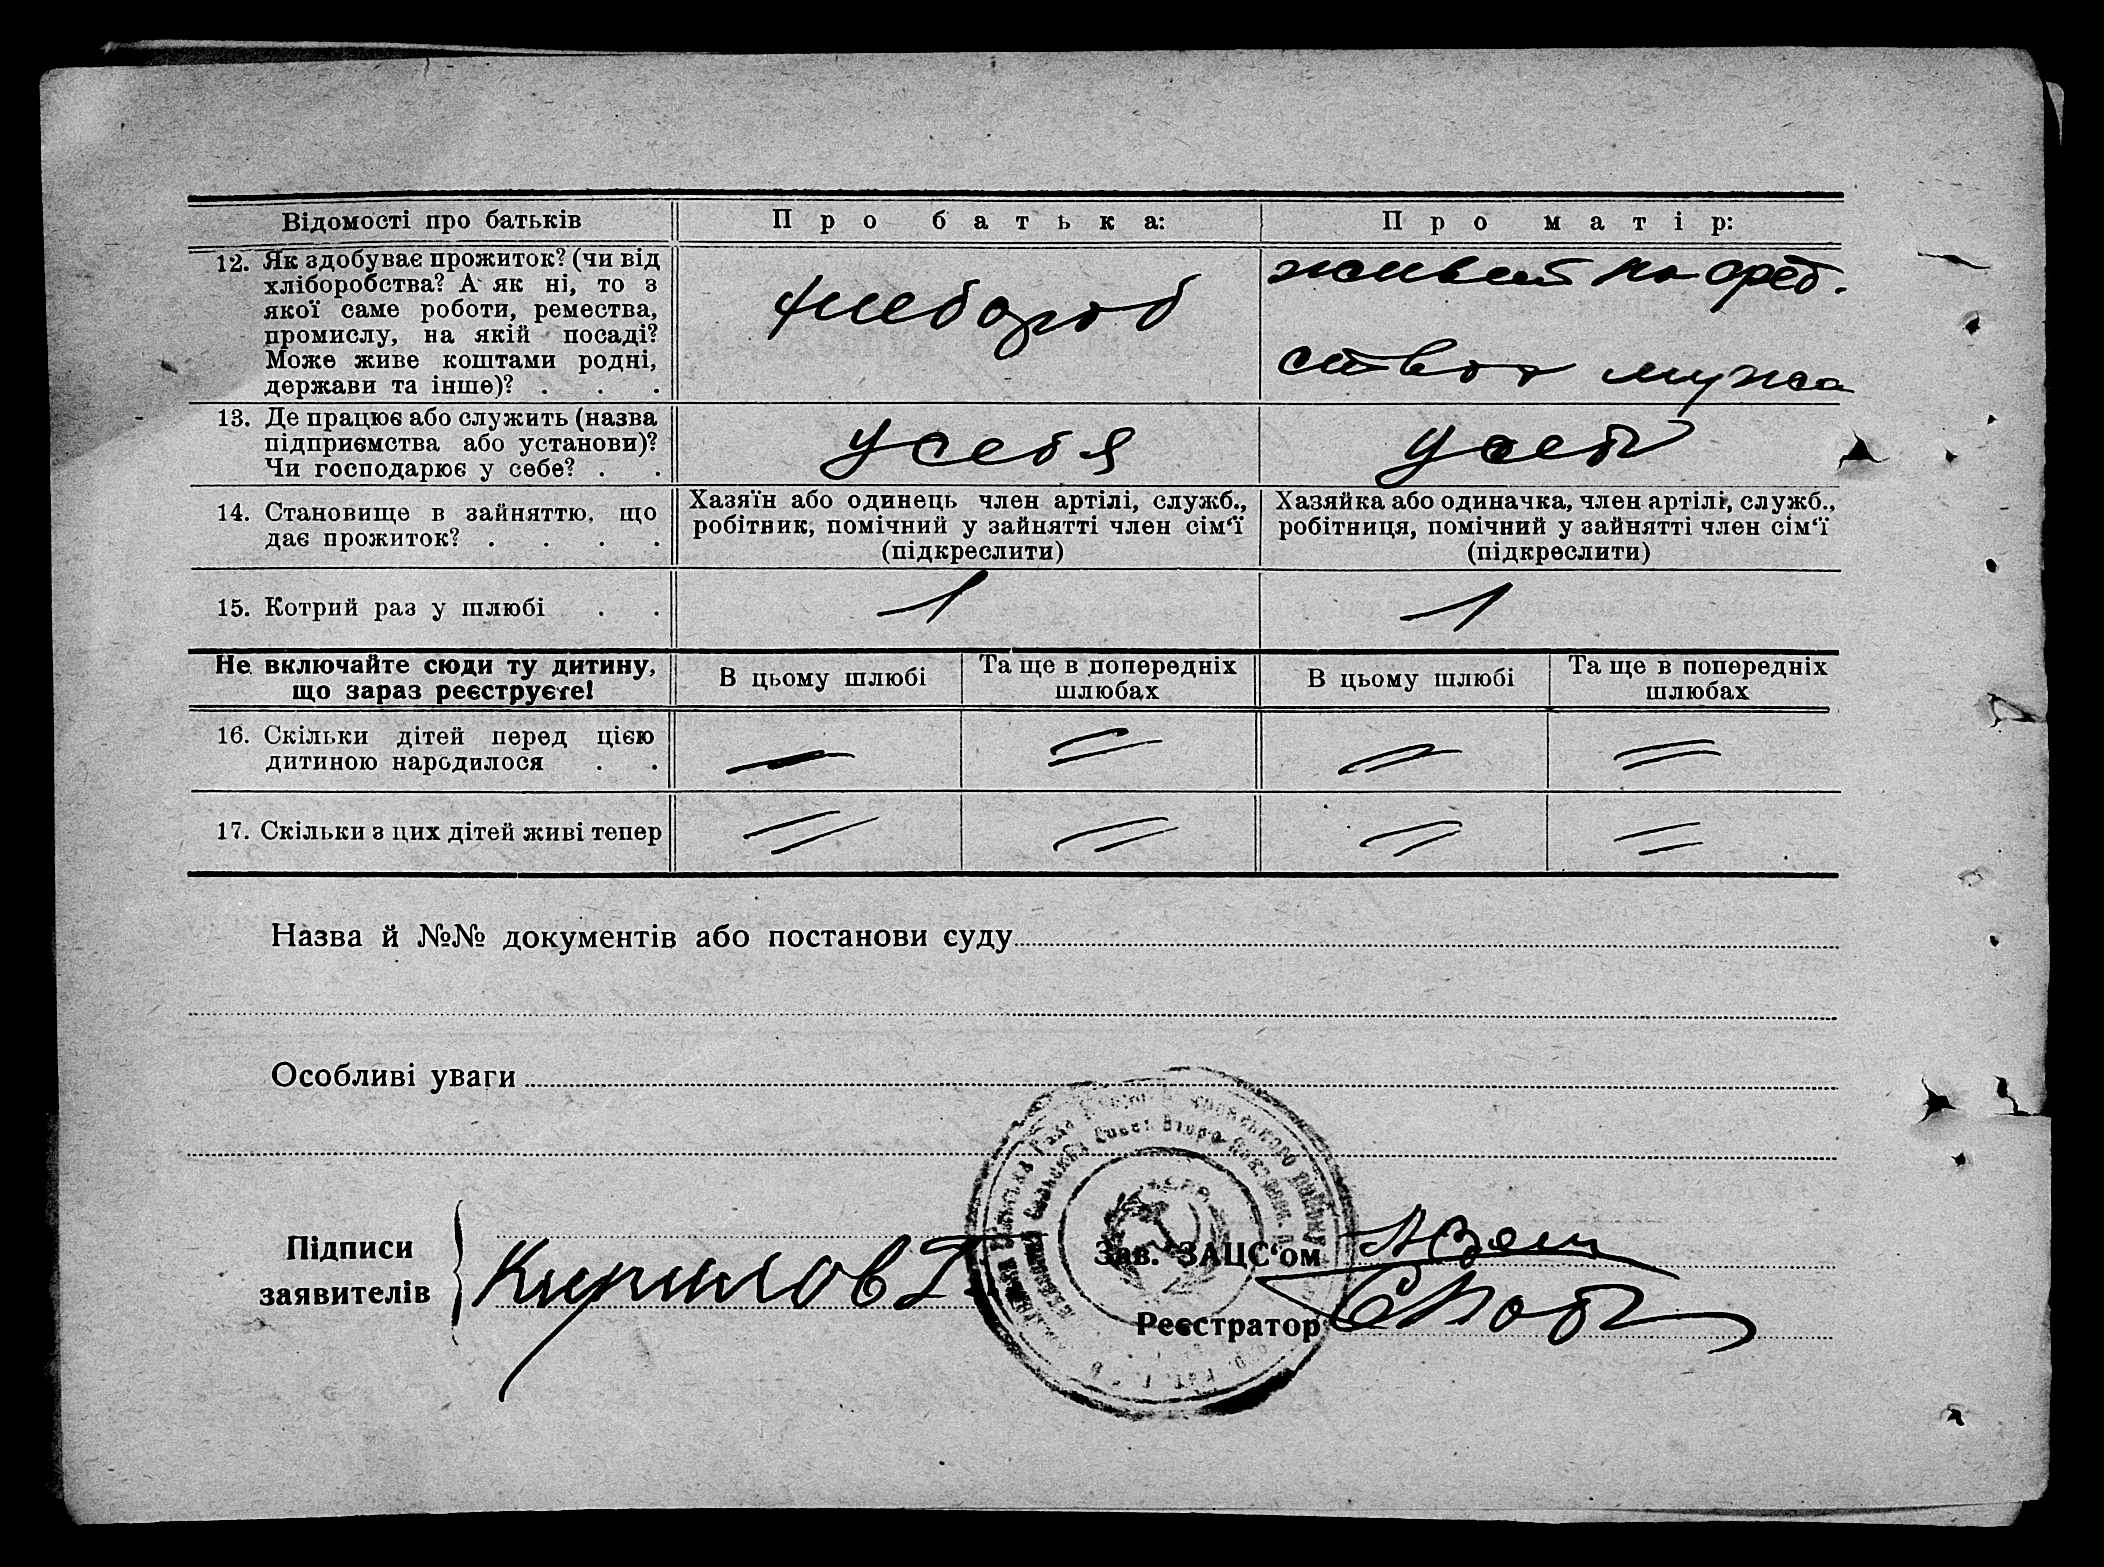 Відомості про батьків
Про батька:
Про матір:
12. Як здобуває прожиток? (чи від
хліборобства? А як ні, то з
якої саме роботи, ремества,
промислу, на якій посаді?
Може живе коштами родні,
держави та інше)? . . .
хлебороб
живет на сред.
ства мужа
13. Де працює або служить (назва
підприємства або установи)?
Чи господарює у себе? . .
у себя
у себя
14. Становище в зайняттю, що
дає прожиток? . . . .
Хазяїн або одинець член артілі, служб.,
робітник, помічний у зайнятті член сім‘ї
(підкреслити)
Хазяйка або одиначка, член артілі, служб.,
робітниця, помічний у зайнятті член сім‘ї
(підкреслити)
15. Котрий раз у шлюбі . .
1
1
Не включайте сюди ту дитину,
що зараз реєструєте!
В цьому шлюбі
Та ще в попередніх
шлюбах
В цьому шлюбі
Та ще в попередніх
шлюбах
16. Скільки дітей перед цією
дитиною народилося . .
17. Скільки з цих дітей живі тепер
Назва й №№ документів або постанови суду
Особливі уваги
Підписи
заявителів
Кирилов
Зав. ЗАЦС‘ом
Реєстратор